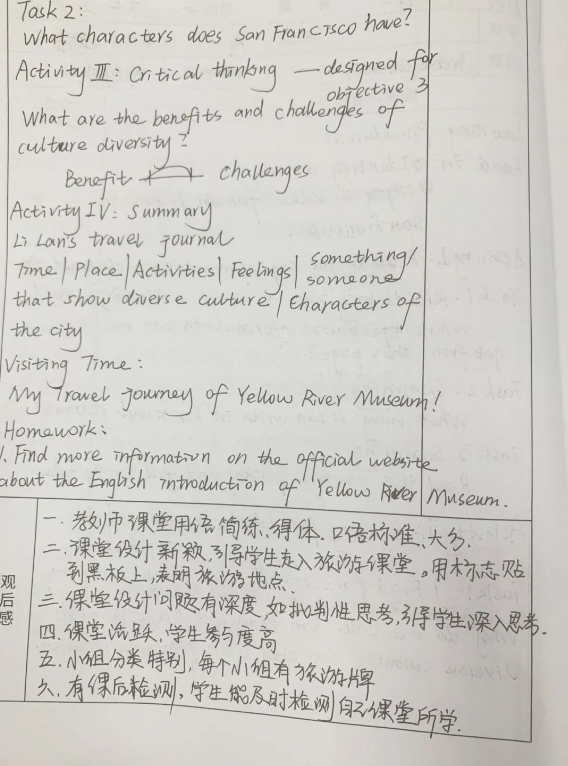 Task 2:
What characters does San Francisco have?
Activity III: Critical thinking — designed for
objective 3
What are the benefits and challenges of
culture diversity?
Benefit Challenges
Activity IV: Summary
Li Lan's travel journal
Time | Place | Activities | Feelings | something/
someone
that show diverse culture | Characters of
the city
Visiting Time:
My Travel journey of Yellow River Museum!
Homework:
1. Find more information on the official website
about the English introduction of Yellow River Museum.
观后感
一.教师课堂用语简练、得体、口语标准、大方.
二.课堂设计新颖,引导学生走入旅游课堂。用标志贴
到黑板上,表明旅游地点.
三.课堂设计问题有深度,如批判性思考,引导学生深入思考.
四.课堂活跃、学生参与度高
五.小组分类特别,每个小组有旅游牌
六.有课后检测,学生能及时检测自己课堂所学.